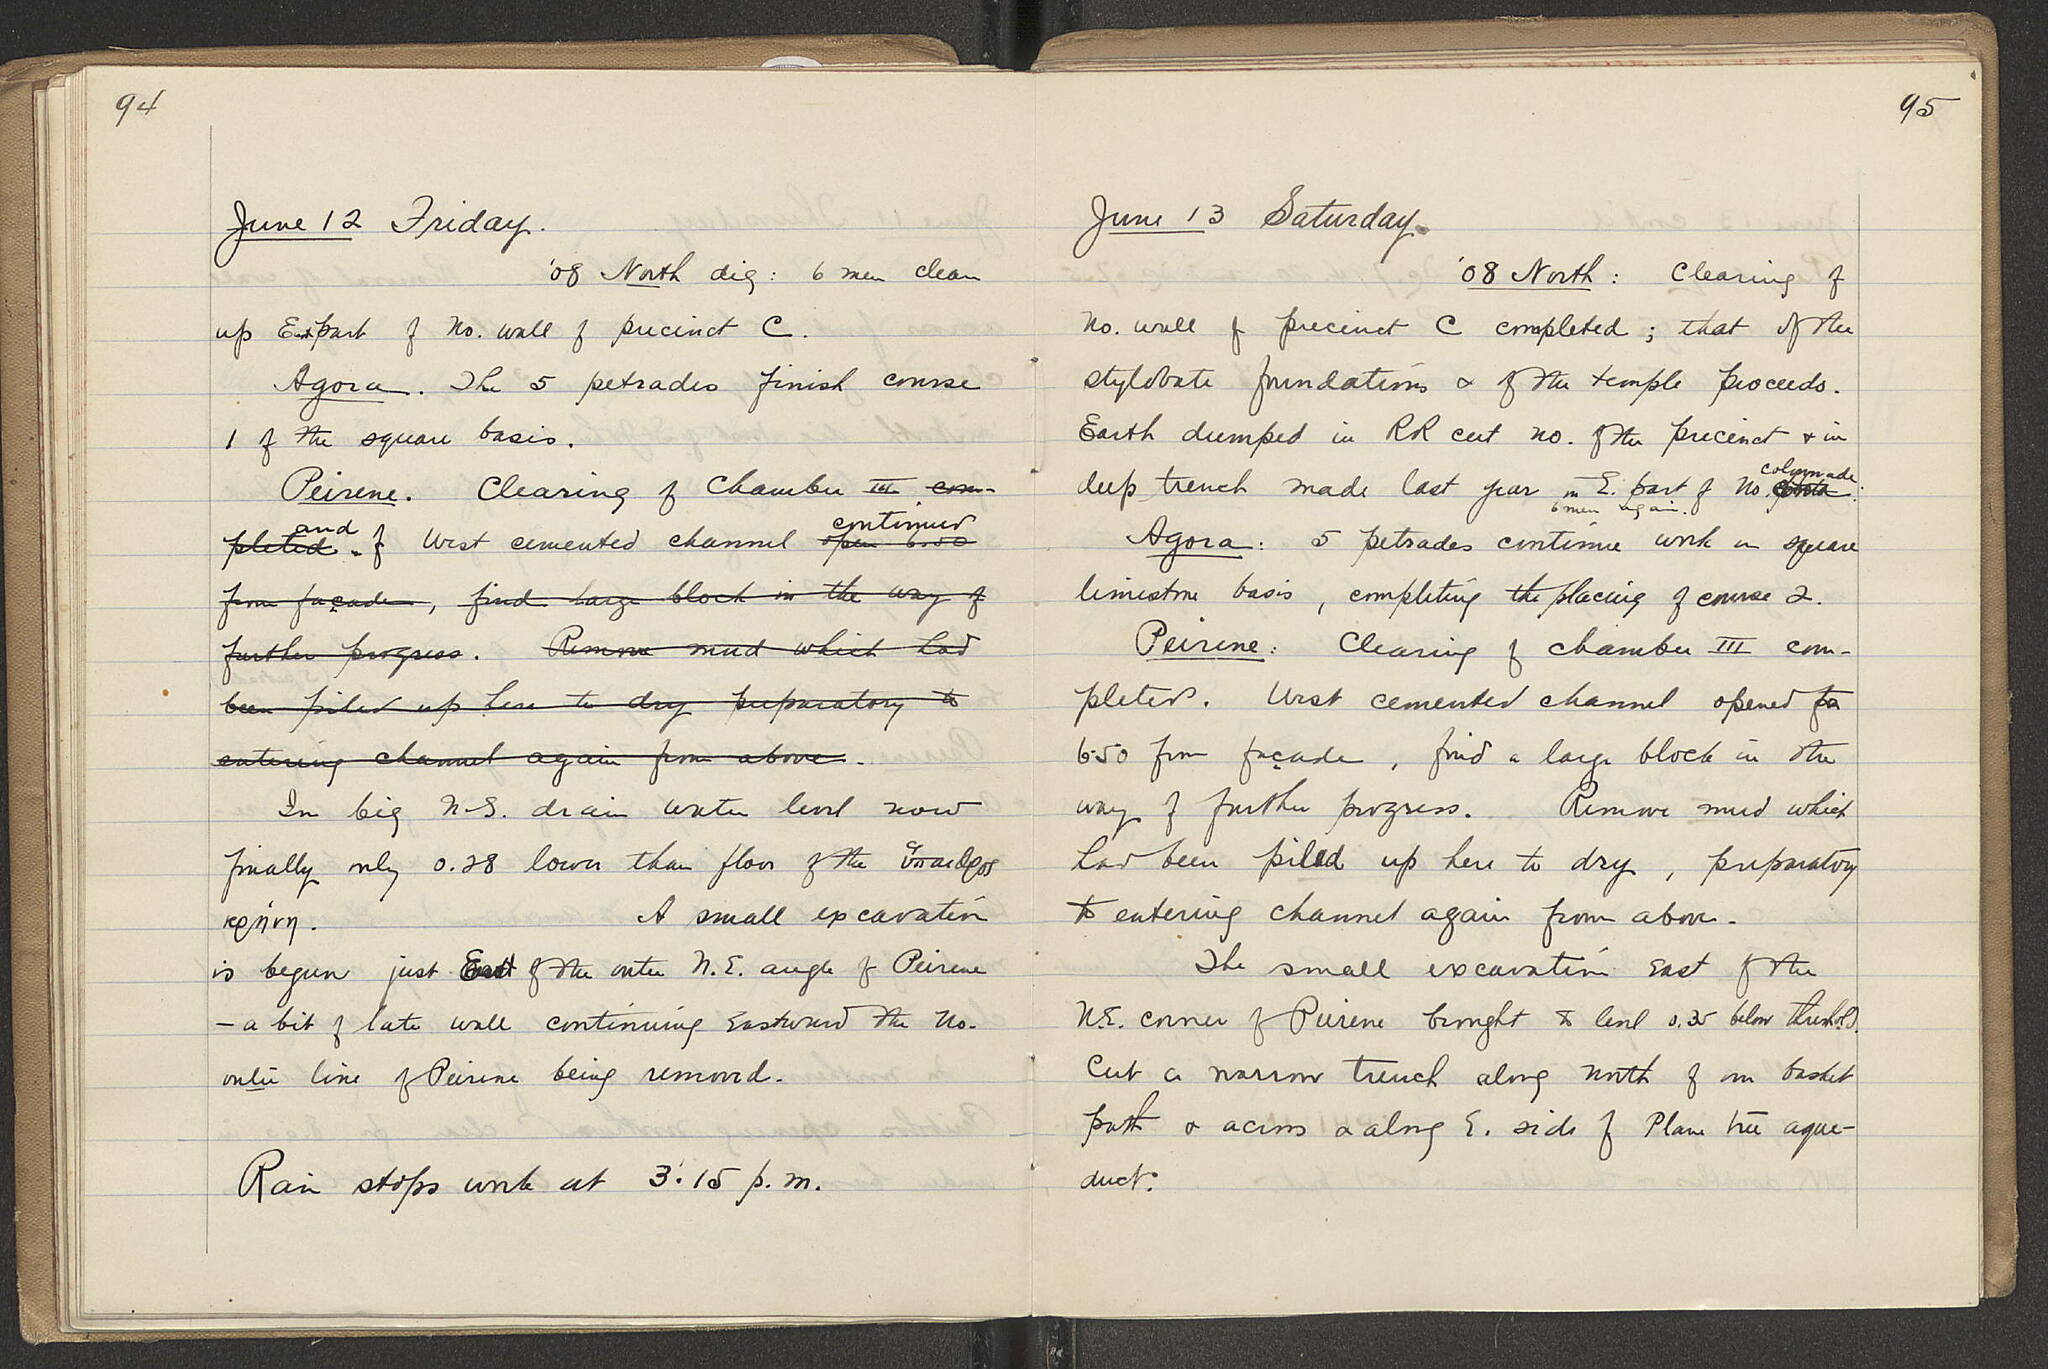 94
June 12 Friday.
'08 North dig: 6 men clean
up East part of No. wall of precinct C.
Agora. The 5 petrades finish course
1 of the square basis.
Peirene. Clearing of Chamber III com-
pleted and of West cemented channel open 6.50 continued
from façade, find large block in the way of
further progress. Remove mud which had
been piled up here to dry preparatory to
entering channel again from above.
In big N-S. drain water level now
finally only 0.28 lower than floor of the ὕπαιθρος
κρήνη. A small excavation
is begun just East of the outer N.E. angle of Peirene
– a bit of late wall continuing Eastward the No.
outer line of Peirene being removed.
Rain stops work at 3:15 p.m.
95
June 13 Saturday.
'08 North: Clearing of
No. wall of precinct C completed; that of the
stylobate foundations & of the temple proceeds.
Earth dumped in RR cut no. of the precinct & in
deep trench made last year in E. part of No. colonnade.
6 men again.
Agora: 5 petrades continue work on square
limestone basis, completing the placing of course 2.
Peirene: Clearing of chamber III com-
pleted. West cemented channel opened to
6.50 from façade, find a large block in the
way of further progress. Remove mud which
had been piled up here to dry, preparatory
to entering channel again from above.
The small excavation East of the
N.E. corner of Peirene brought to level 0.35 below threshold.
Cut a narrow trench along north of our basket
path & across & along E. side of Plane tree aque-
duct.